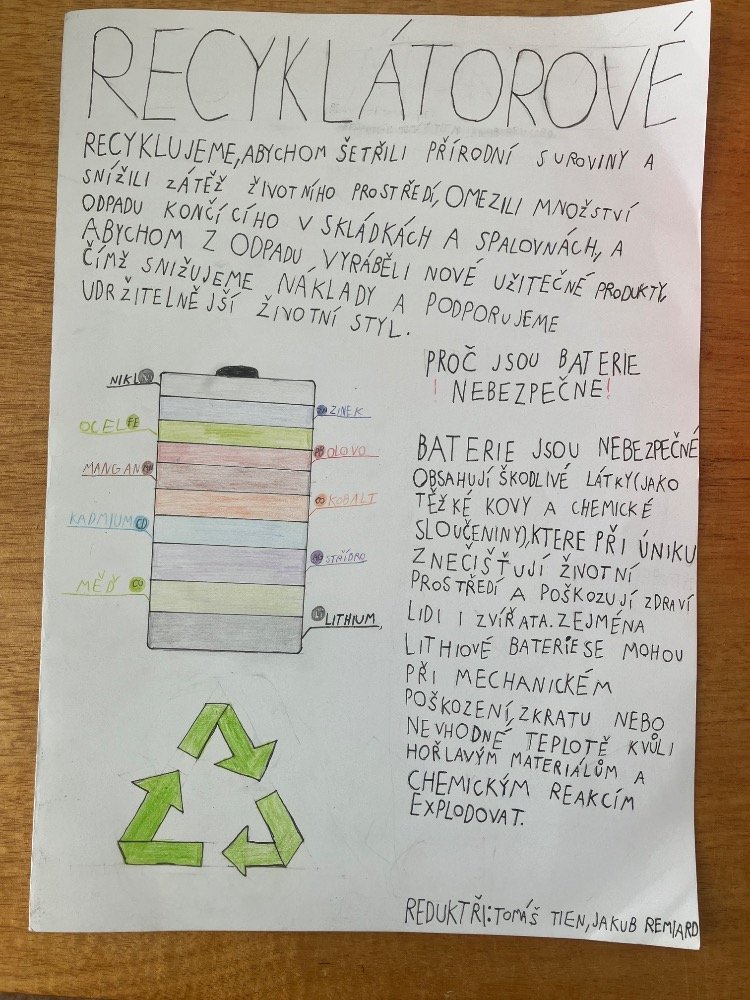 RECYKLÁTOROVÉ
RECYKLUJEME, ABYCHOM ŠETŘILI PŘÍRODNÍ SUROVINY A
SNÍŽILI ZÁTĚŽ ŽIVOTNÍHO PROSTŘEDÍ, OMEZILI MNOŽSTVÍ
ODPADU KONČÍCÍHO V SKLÁDKÁCH A SPALOVNÁCH, A
ABYCHOM Z ODPADU VYRÁBĚLI NOVÉ UŽITEČNÉ PRODUKTY,
ČÍMŽ SNIŽUJEME NÁKLADY A PODPORUJEME
UDRŽITELNĚJŠÍ ŽIVOTNÍ STYL.
NIKL
ZINEK
OCEL FE
PB OLOVO
MANGAN MN
CO KOBALT
KADMIUM CD
AG STŘÍDRO
MĚĎ CU
LI LITHIUM
PROČ JSOU BATERIE
! NEBEZPEČNE!
BATERIE JSOU NEBEZPEČNÉ
OBSAHUJÍ ŠKODLIVÉ LÁTKY(JAKO
TĚŽKÉ KOVY A CHEMICKÉ
SLOUČENINY), KTERE PŘI ÚNIKU
ZNEČIŠŤUJÍ ŽIVOTNÍ
PROSTŘEDÍ A POŠKOZUJÍ ZDRAVÍ
LIDI I ZVÍŘATA. ZEJMÉNA
LITHIOVÉ BATERIE SE MOHOU
PŘI MECHANICKÉM
POŠKOZENÍ, ZKRATU NEBO
NEVHODNÉ TEPLOTĚ KVŮLI
HOŘLAVÝM MATERIÁLŮM A
CHEMICKÝM REAKCÍM
EXPLODOVAT.
REDUKTŘI: TOMÁŠ TIEN, JAKUB REMIARD